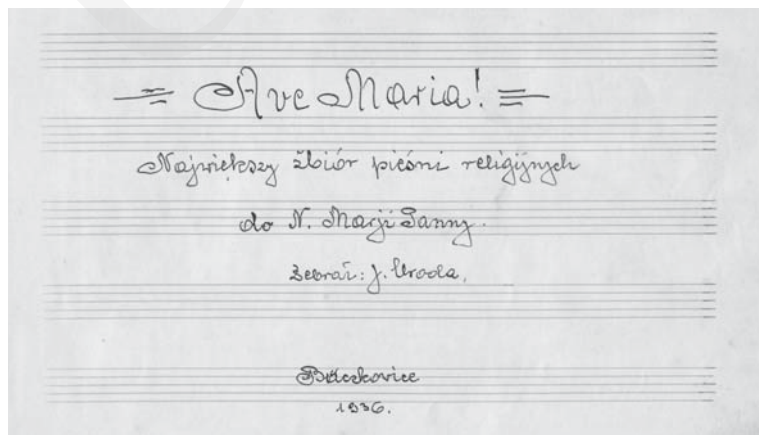 = Ave Maria! =
Największy zbiór pieśni religijnych
do N. Marji Panny.
Zebrał: J. Uroda.
Buczkovice
1936.